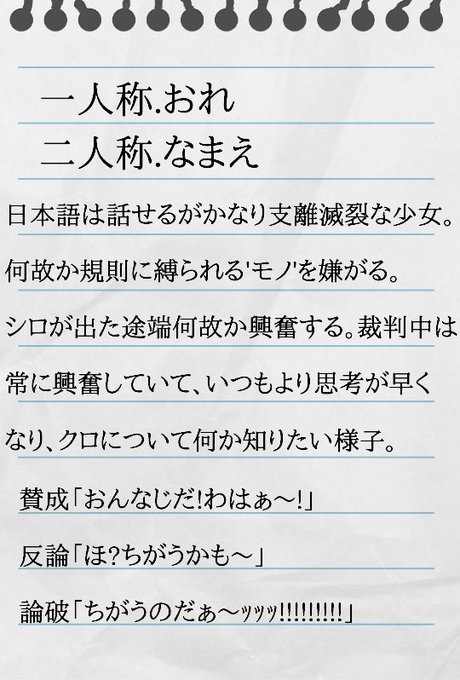 一人称.おれ
二人称.なまえ
日本語は話せるがかなり支離滅裂な少女。
何故か規則に縛られる'モノ'を嫌がる。
シロが出た途端何故か興奮する。裁判中は
常に興奮していて、いつもより思考が早く
なり、クロについて何か知りたい様子。
賛成「おんなじだ!わはぁ〜!」
反論「ほ?ちがうかも〜」
論破「ちがうのだぁ〜ッッッ!!!!!!!!!」